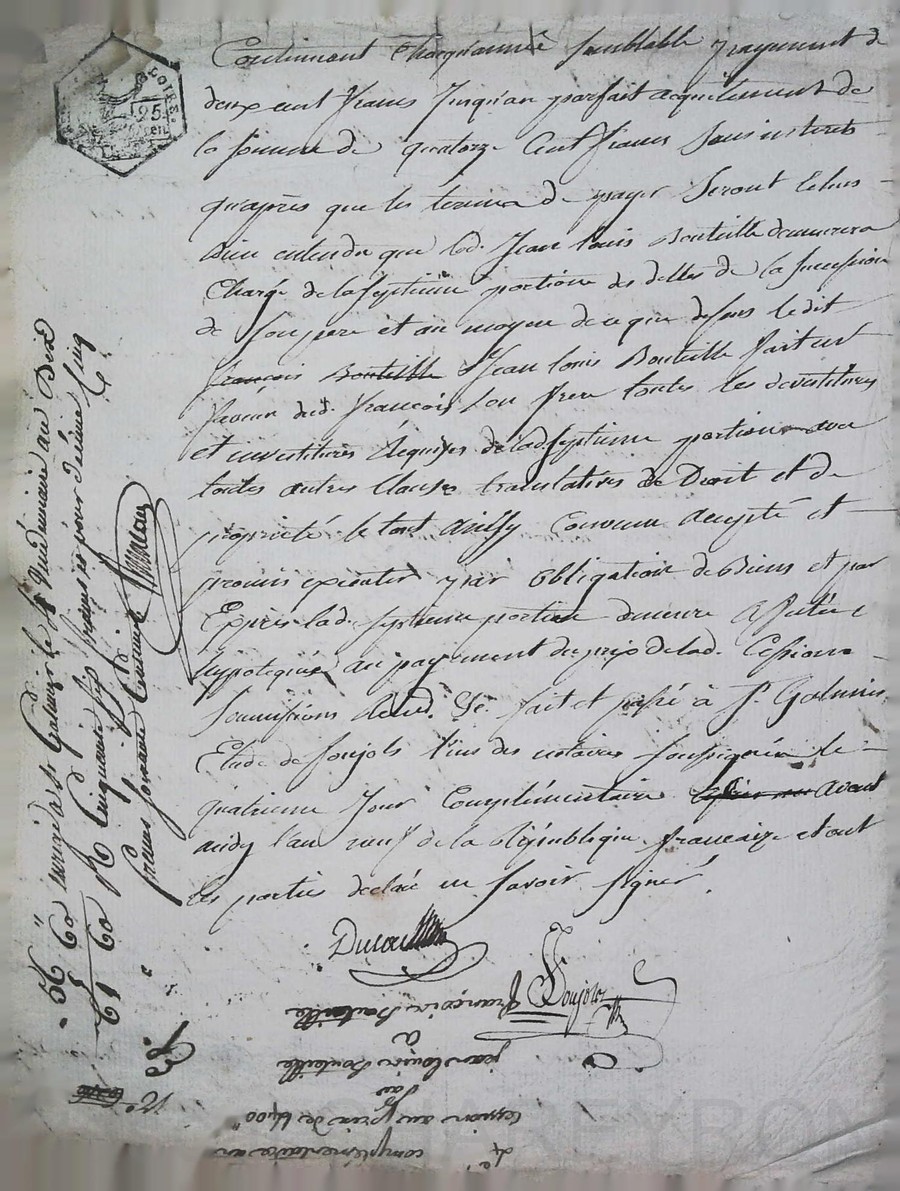 Continuant chaqu'année semblable payement de
deux cent francs Jusqu'au parfait acquitement de
la somme de quatorze Cent francs sans interets
qu'après que les termes de payer Seront Echus
Bien entendu que led. Jean louis Bouteille demeurera
Chargé de la septieme portion des dettes de la succession
de son pere et au moyen de ce que dessus ledit
françois Bouteille Jean louis Bouteille fait en
faveur dud. françois son frere toutes les devetitures
et investitures Requises de lad. septieme portion avec
toutes autres Clauses translatives de Droit et de
proprieté le tout ainssy Convenu accepté et
promis executer par obligation de Biens et par
Exprès lad. septieme portion demeure affectée
hypotequée au payement du prix de lad. Cession
Soumissions Rend. &c. fait et passé à St. Galmier
Etude de soujols l'un des notaires soussignés le
quatrieme Jour Complémentaire avant
midy l'an neuf de la République francaize et ont
les parties declaré savoir signer.
Soujols
25
à St Galmier le vendémiaire an Dix
Cinquante six francs pour décime Cinq
francs soixante Centimes
56 "
5 60
61 60
4e complémentaire an
Cession au prix de 1400"
par
jean louis Bouteille
a
françois Bouteille